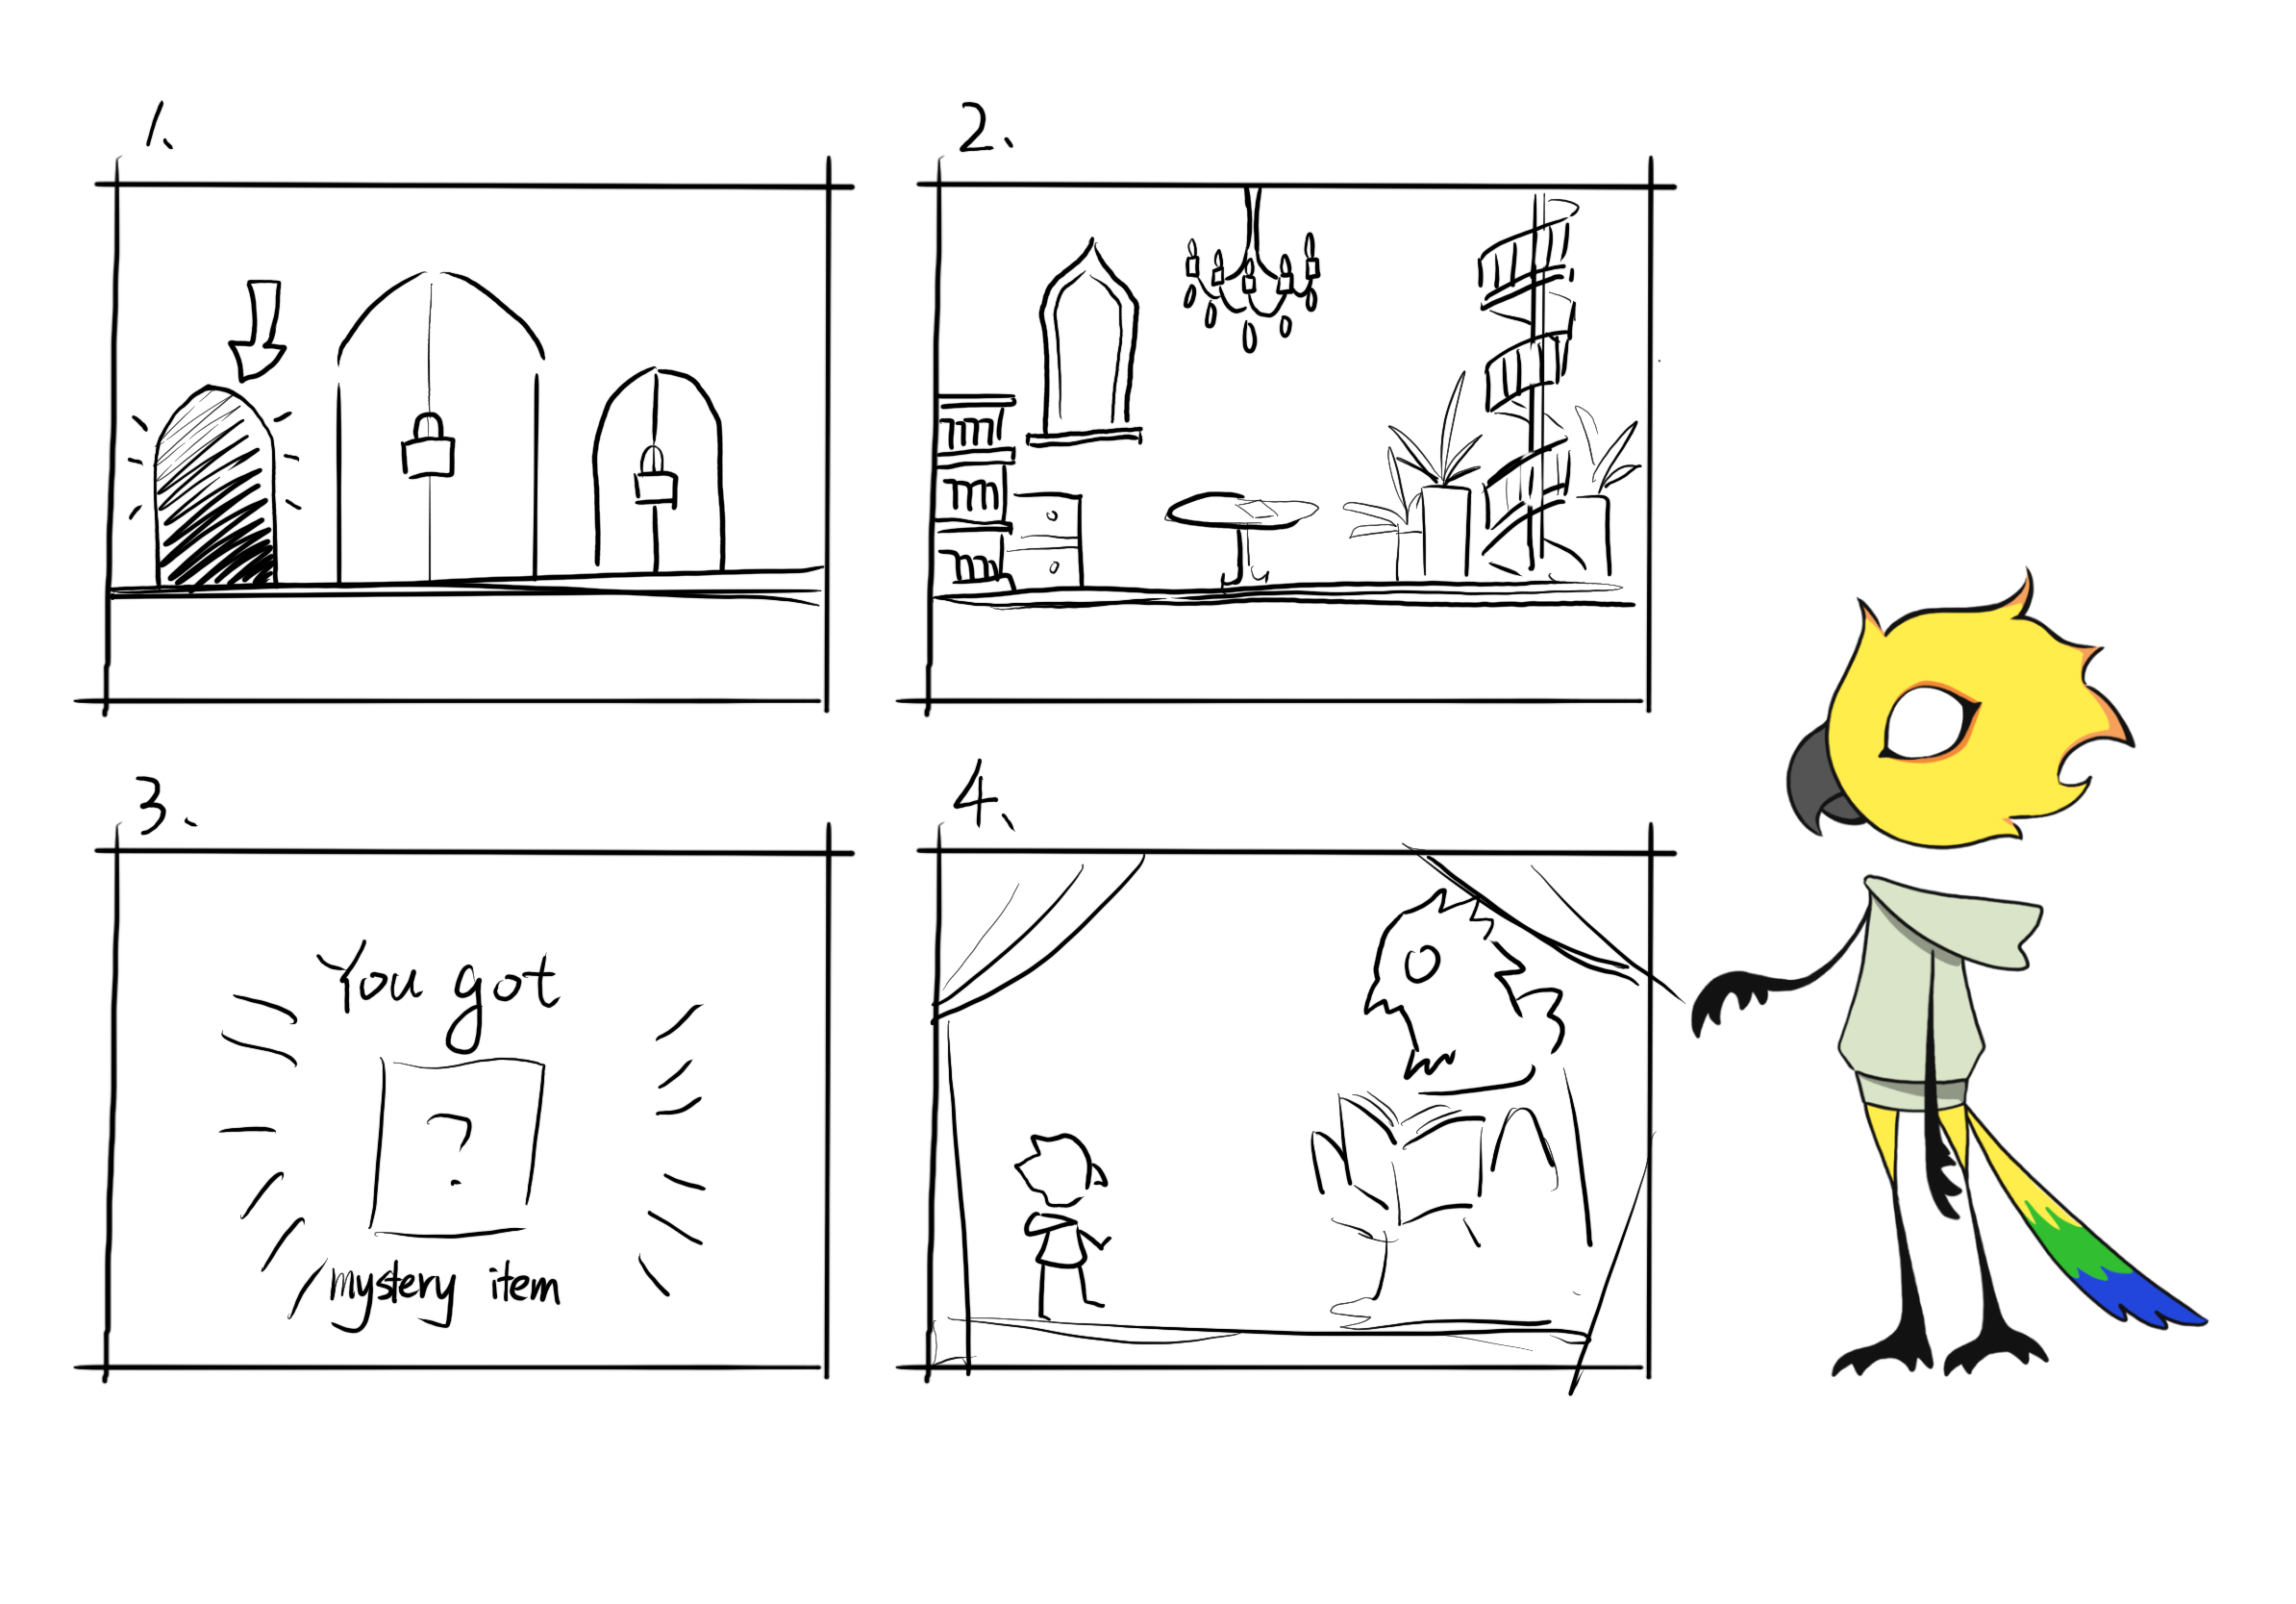 1、
2、
3、
You got
?
mystery item
4、